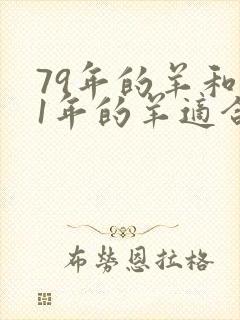 79年的羊和
1年的羊適合
布勞恩拉格